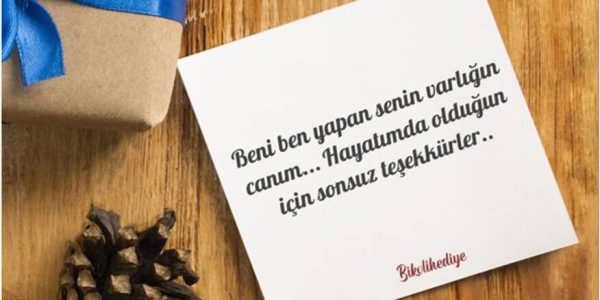 Beni ben yapan senin varlığın
canım... Hayatımda olduğun
için sonsuz teşekkürler..
Bikolihediye